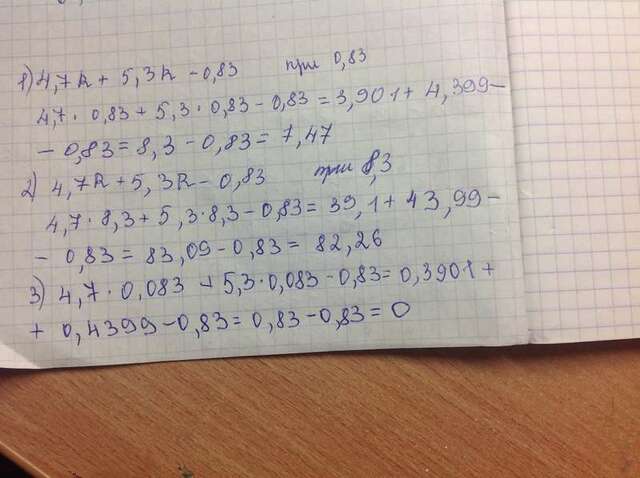 1) 4,7k + 5,3k - 0,83 при 0,83
4,7 · 0,83 + 5,3 · 0,83 - 0,83 = 3,901 + 4,399 -
- 0,83 = 8,3 - 0,83 = 7,47
2) 4,7k + 5,3k - 0,83 при 8,3
4,7 · 8,3 + 5,3 · 8,3 - 0,83 = 39,1 + 43,99 -
- 0,83 = 83,09 - 0,83 = 82,26
3) 4,7 · 0,083 + 5,3 · 0,083 - 0,83 = 0,3901 +
+ 0,4399 - 0,83 = 0,83 - 0,83 = 0